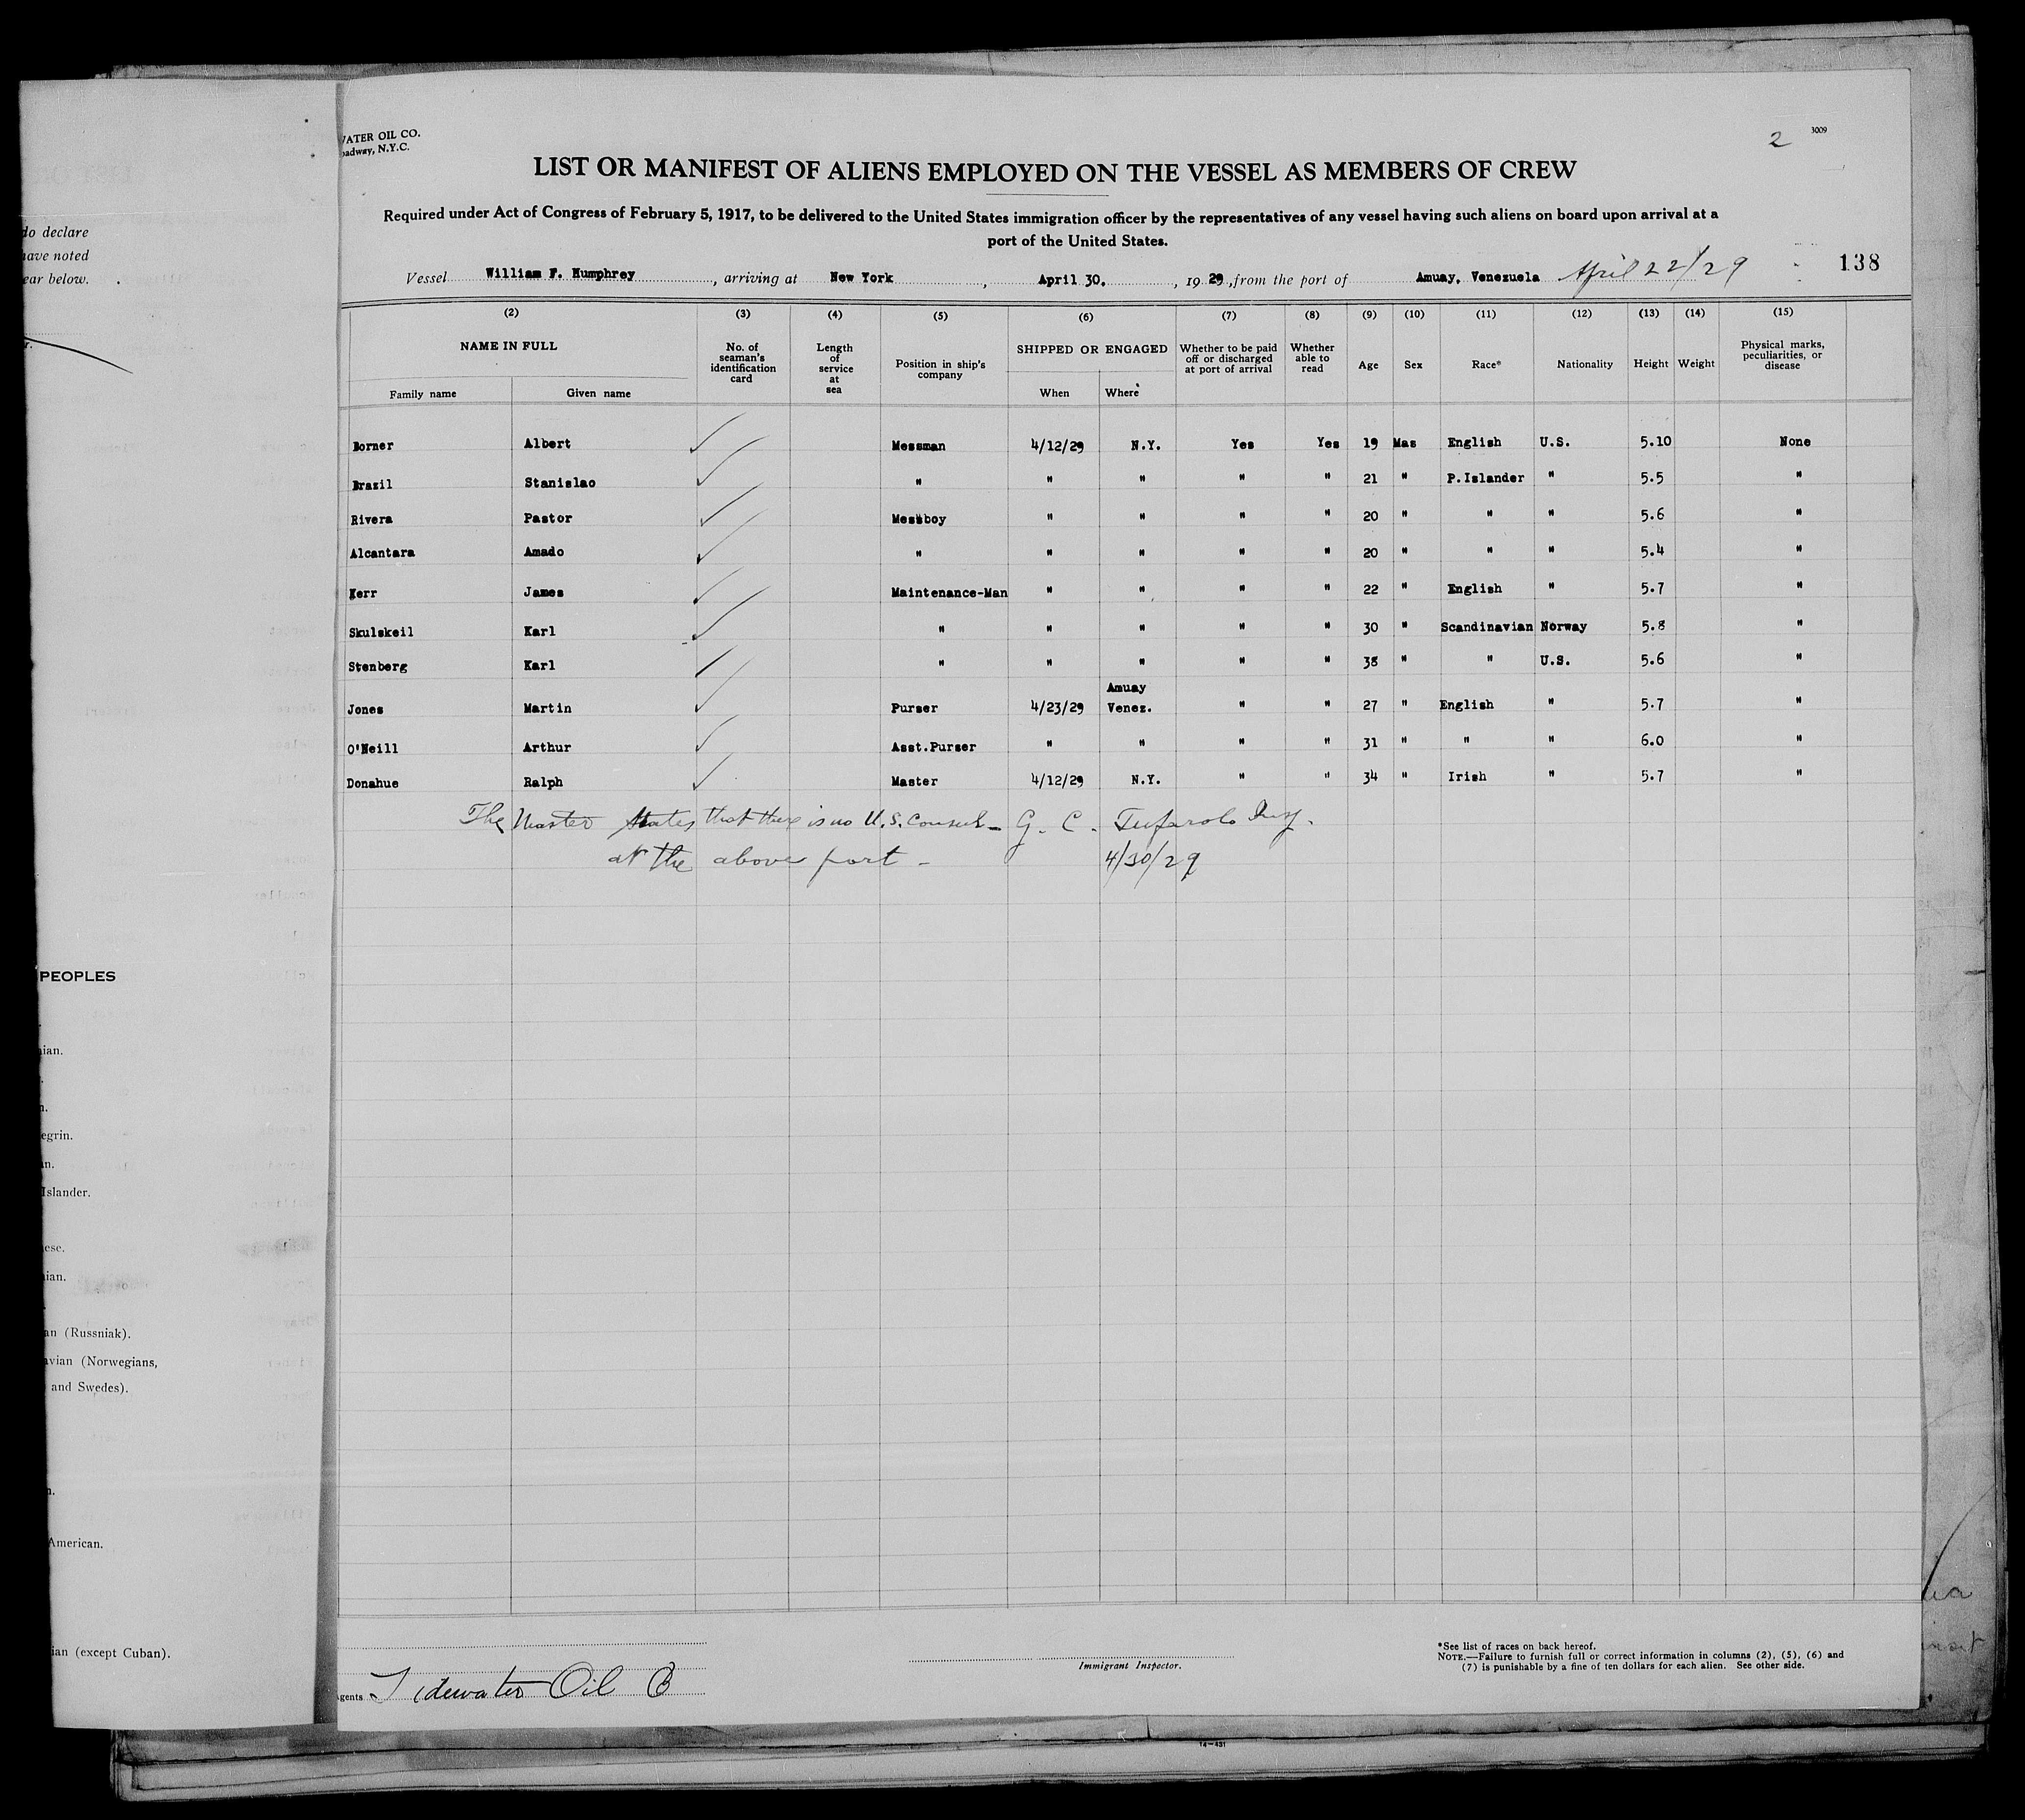 WATER OIL CO.
oadway, N.Y.C.
2 3009
LIST OR MANIFEST OF ALIENS EMPLOYED ON THE VESSEL AS MEMBERS OF CREW
Required under Act of Congress of February 5, 1917, to be delivered to the United States immigration officer by the representatives of any vessel having such aliens on board upon arrival at a
port of the United States.
Vessel William F. Humphrey, arriving at New York, April 30, 1929, from the port of Amuay, Venezuela April 22/29 138
do declare
have noted
ear below.
(2) (3) (4) (5) (6) (7) (8) (9) (10) (11) (12) (13) (14) (15)
NAME IN FULL
Family name Given name
No. of
seaman's
identification
card
Length
of
service
at
sea
Position in ship's
company
SHIPPED OR ENGAGED
When Where
Whether to be paid
off or discharged
at port of arrival
Whether
able to
read
Age Sex Race* Nationality Height Weight
Physical marks,
peculiarities, or
disease
Borner Albert Messman 4/12/29 N.Y. Yes Yes 19 Mas English U.S. 5.10 None
Brazil Stanislao " " " " " 21 " P.Islander " 5.5 "
Rivera Pastor Messboy " " " " 20 " " " 5.6 "
Alcantara Amado " " " " " 20 " " " 5.4 "
Kerr James Maintenance-Man " " " " 22 " English " 5.7 "
Skulskeil Karl " " " " " 30 " Scandinavian Norway 5.8 "
Stenberg Karl " " " " " 38 " " U.S. 5.6 "
Jones Martin Purser 4/23/29 Amuay Venez. " " 27 " English " 5.7 "
O'Neill Arthur Asst.Purser " " " " 31 " " " 6.0 "
Donahue Ralph Master 4/12/29 N.Y. " " 34 " Irish " 5.7 "
The Master States that there is no U.S. Consul - G. C. Tufarolo Insp.
at the above port - 4/30/29
PEOPLES
ian.
egrin.
Islander.
ese.
ian.
an (Russniak).
avian (Norwegians,
and Swedes).
American.
ian (except Cuban).
Agents Tidewater Oil Co
Immigrant Inspector.
*See list of races on back hereof.
NOTE.—Failure to furnish full or correct information in columns (2), (5), (6) and
(7) is punishable by a fine of ten dollars for each alien. See other side.
14—431